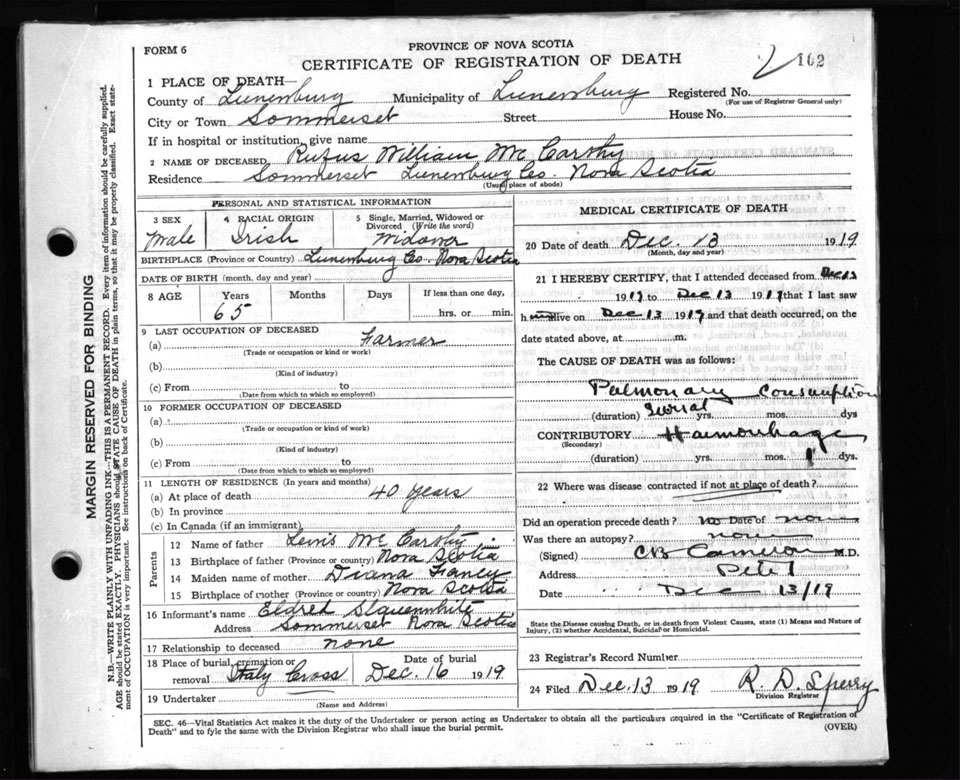 FORM 6
PROVINCE OF NOVA SCOTIA
CERTIFICATE OF REGISTRATION OF DEATH
102
1 PLACE OF DEATH—
County of Lunenburg Municipality of Lunenburg Registered No.
(For use of Registrar General only)
City or Town Sommerset Street House No.
If in hospital or institution, give name
2 NAME OF DECEASED Rufus William McCarthy
Residence Sommerset Lunenburg Co. Nova Scotia
(Usual place of abode)
MARGIN RESERVED FOR BINDING
N.B.—WRITE PLAINLY WITH UNFADING INK—THIS IS A PERMANENT RECORD. Every item of information should be carefully supplied.
AGE should be stated EXACTLY. PHYSICIANS should STATE CAUSE OF DEATH in plain terms, so that it may be properly classified. Exact state-
ment of OCCUPATION is very important. See instructions on back of Certificate.
PERSONAL AND STATISTICAL INFORMATION
3 SEX 4 RACIAL ORIGIN 5 Single, Married, Widowed or
Divorced (Write the word)
Male Irish Widower
BIRTHPLACE (Province or Country) Lunenburg Co. Nova Scotia
DATE OF BIRTH (month, day and year)
8 AGE Years Months Days If less than one day,
65 hrs. or min.
9 LAST OCCUPATION OF DECEASED
(a) Farmer
(Trade or occupation or kind or work)
(b)
(Kind of industry)
(c) From to
(Date from which to which so employed)
10 FORMER OCCUPATION OF DECEASED
(a)
(Trade or occupation or kind of work)
(b)
(Kind of industry)
(c) From to
(Date from which to which so employed)
11 LENGTH OF RESIDENCE (In years and months)
(a) At place of death 40 years
(b) In province
(c) In Canada (if an immigrant)
Parents
12 Name of father Lewis McCarthy
13 Birthplace of father (Province or country) Nova Scotia
14 Maiden name of mother Diana Fancy
15 Birthplace of mother (Province or country) Nova Scotia
16 Informant's name Eldred Slauenwhite
Address Sommerset Nova Scotia
17 Relationship to deceased none
18 Place of burial, cremation or removal Italy Cross Date of burial Dec. 16 1919
19 Undertaker
(Name and Address)
MEDICAL CERTIFICATE OF DEATH
20 Date of death Dec. 13 1919
(Month, day and year)
21 I HEREBY CERTIFY, that I attended deceased from Dec 12
1919 to Dec 13 1919 that I last saw
h alive on Dec 13 1919 and that death occurred, on the
date stated above, at m.
The CAUSE OF DEATH was as follows:
Pulmonary Consumption
(duration) several yrs. mos. dys
CONTRIBUTORY Haemorrhage
(Secondary)
(duration) yrs. mos. 1 dys.
22 Where was disease contracted if not at place of death?
Did an operation precede death? no Date of none
Was there an autopsy? none
(Signed) CB Cameron M.D.
Address
Date Dec 13/19
State the Disease causing Death, or in death from Violent Causes, state (1) Means and Nature of
Injury, (2) whether Accidental, Suicidal or Homicidal.
23 Registrar's Record Number
24 Filed Dec. 13 1919 R. D. Sperry
Division Registrar
SEC. 46—Vital Statistics Act makes it the duty of the Undertaker or person acting as Undertaker to obtain all the particulars required in the "Certificate of Registration of
Death" and to fyle the same with the Division Registrar who shall issue the burial permit.
(OVER)